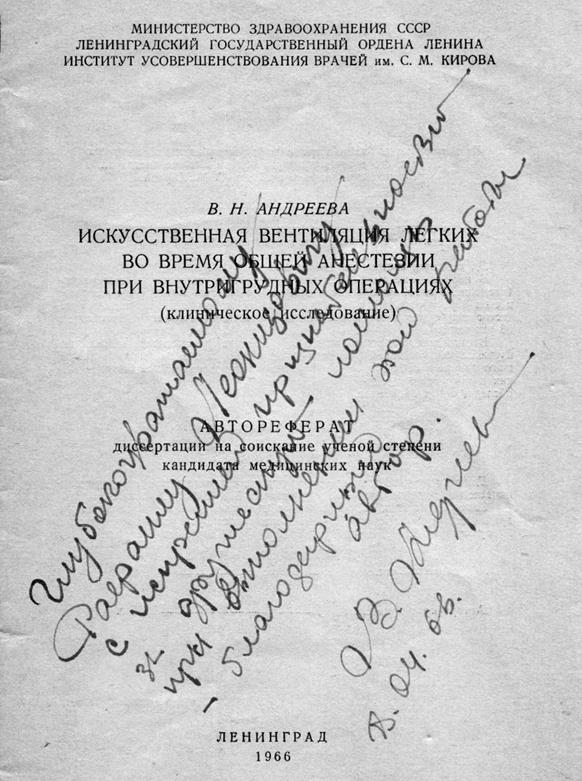 МИНИСТЕРСТВО ЗДРАВООХРАНЕНИЯ СССР
ЛЕНИНГРАДСКИЙ ГОСУДАРСТВЕННЫЙ ОРДЕНА ЛЕНИНА
ИНСТИТУТ УСОВЕРШЕНСТВОВАНИЯ ВРАЧЕЙ им. С. М. КИРОВА
В. Н. АНДРЕЕВА
ИСКУССТВЕННАЯ ВЕНТИЛЯЦИЯ ЛЕГКИХ
ВО ВРЕМЯ ОБЩЕЙ АНЕСТЕЗИИ
ПРИ ВНУТРИГРУДНЫХ ОПЕРАЦИЯХ
(клиническое исследование)
АВТОРЕФЕРАТ
диссертации на соискание ученой степени
кандидата медицинских наук
Глубокоуважаемому
Рафаилу Леонидовичу
с искренней признательностью
за дружескую помощь
при выполнении этой работы
благодарный автор.
В. Андреева
ЛЕНИНГРАД
1966